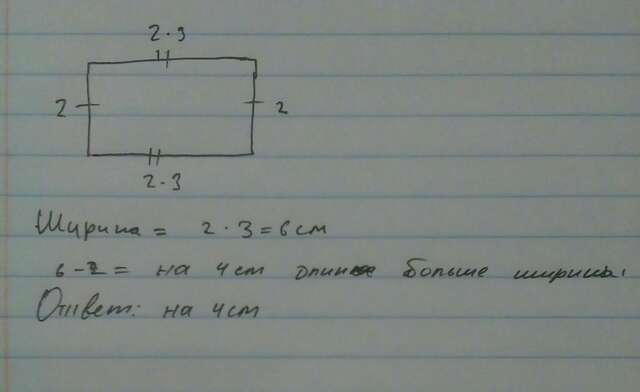 2·3
2 2
2·3
Ширина = 2·3=6см
6-2= на 4см длинае больше ширины.
Ответ: на 4см